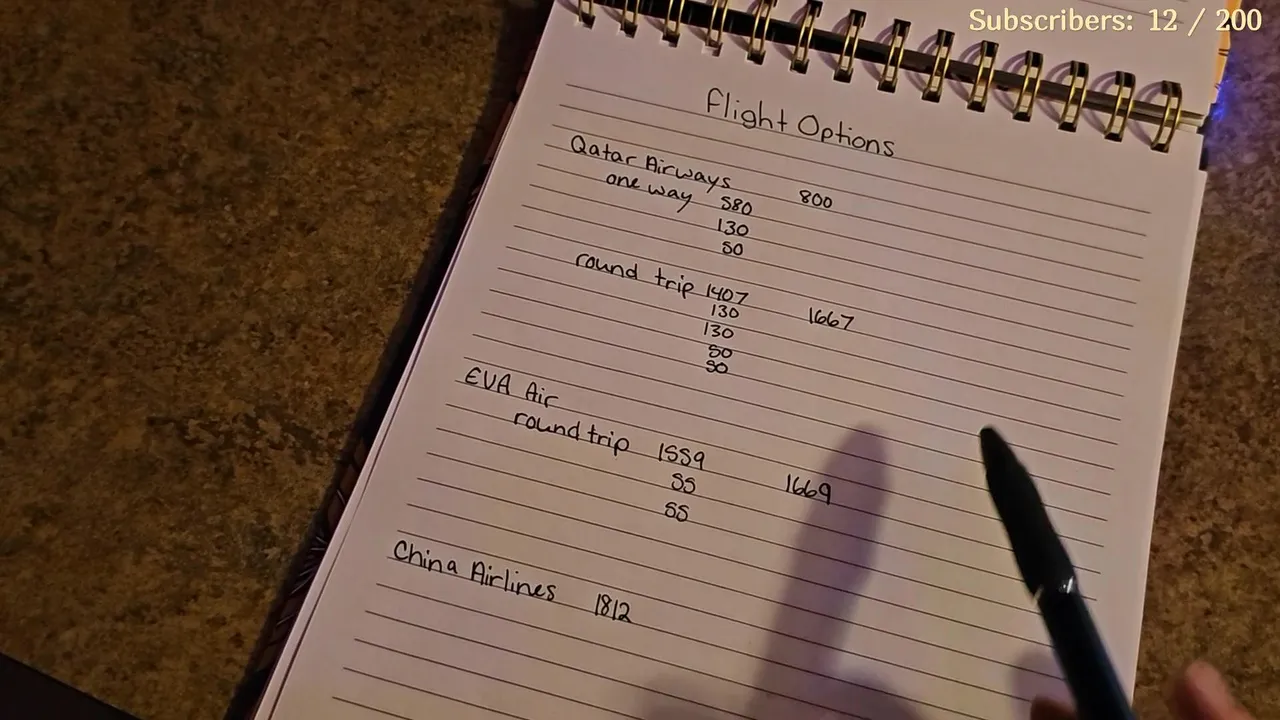 Subscribers: 12 / 200
Flight Options
Qatar Airways 800
one way 580
130
50
round trip 1407
130 1667
130
50
50
EVA Air
round trip 1559
55 1669
55
China Airlines 1812